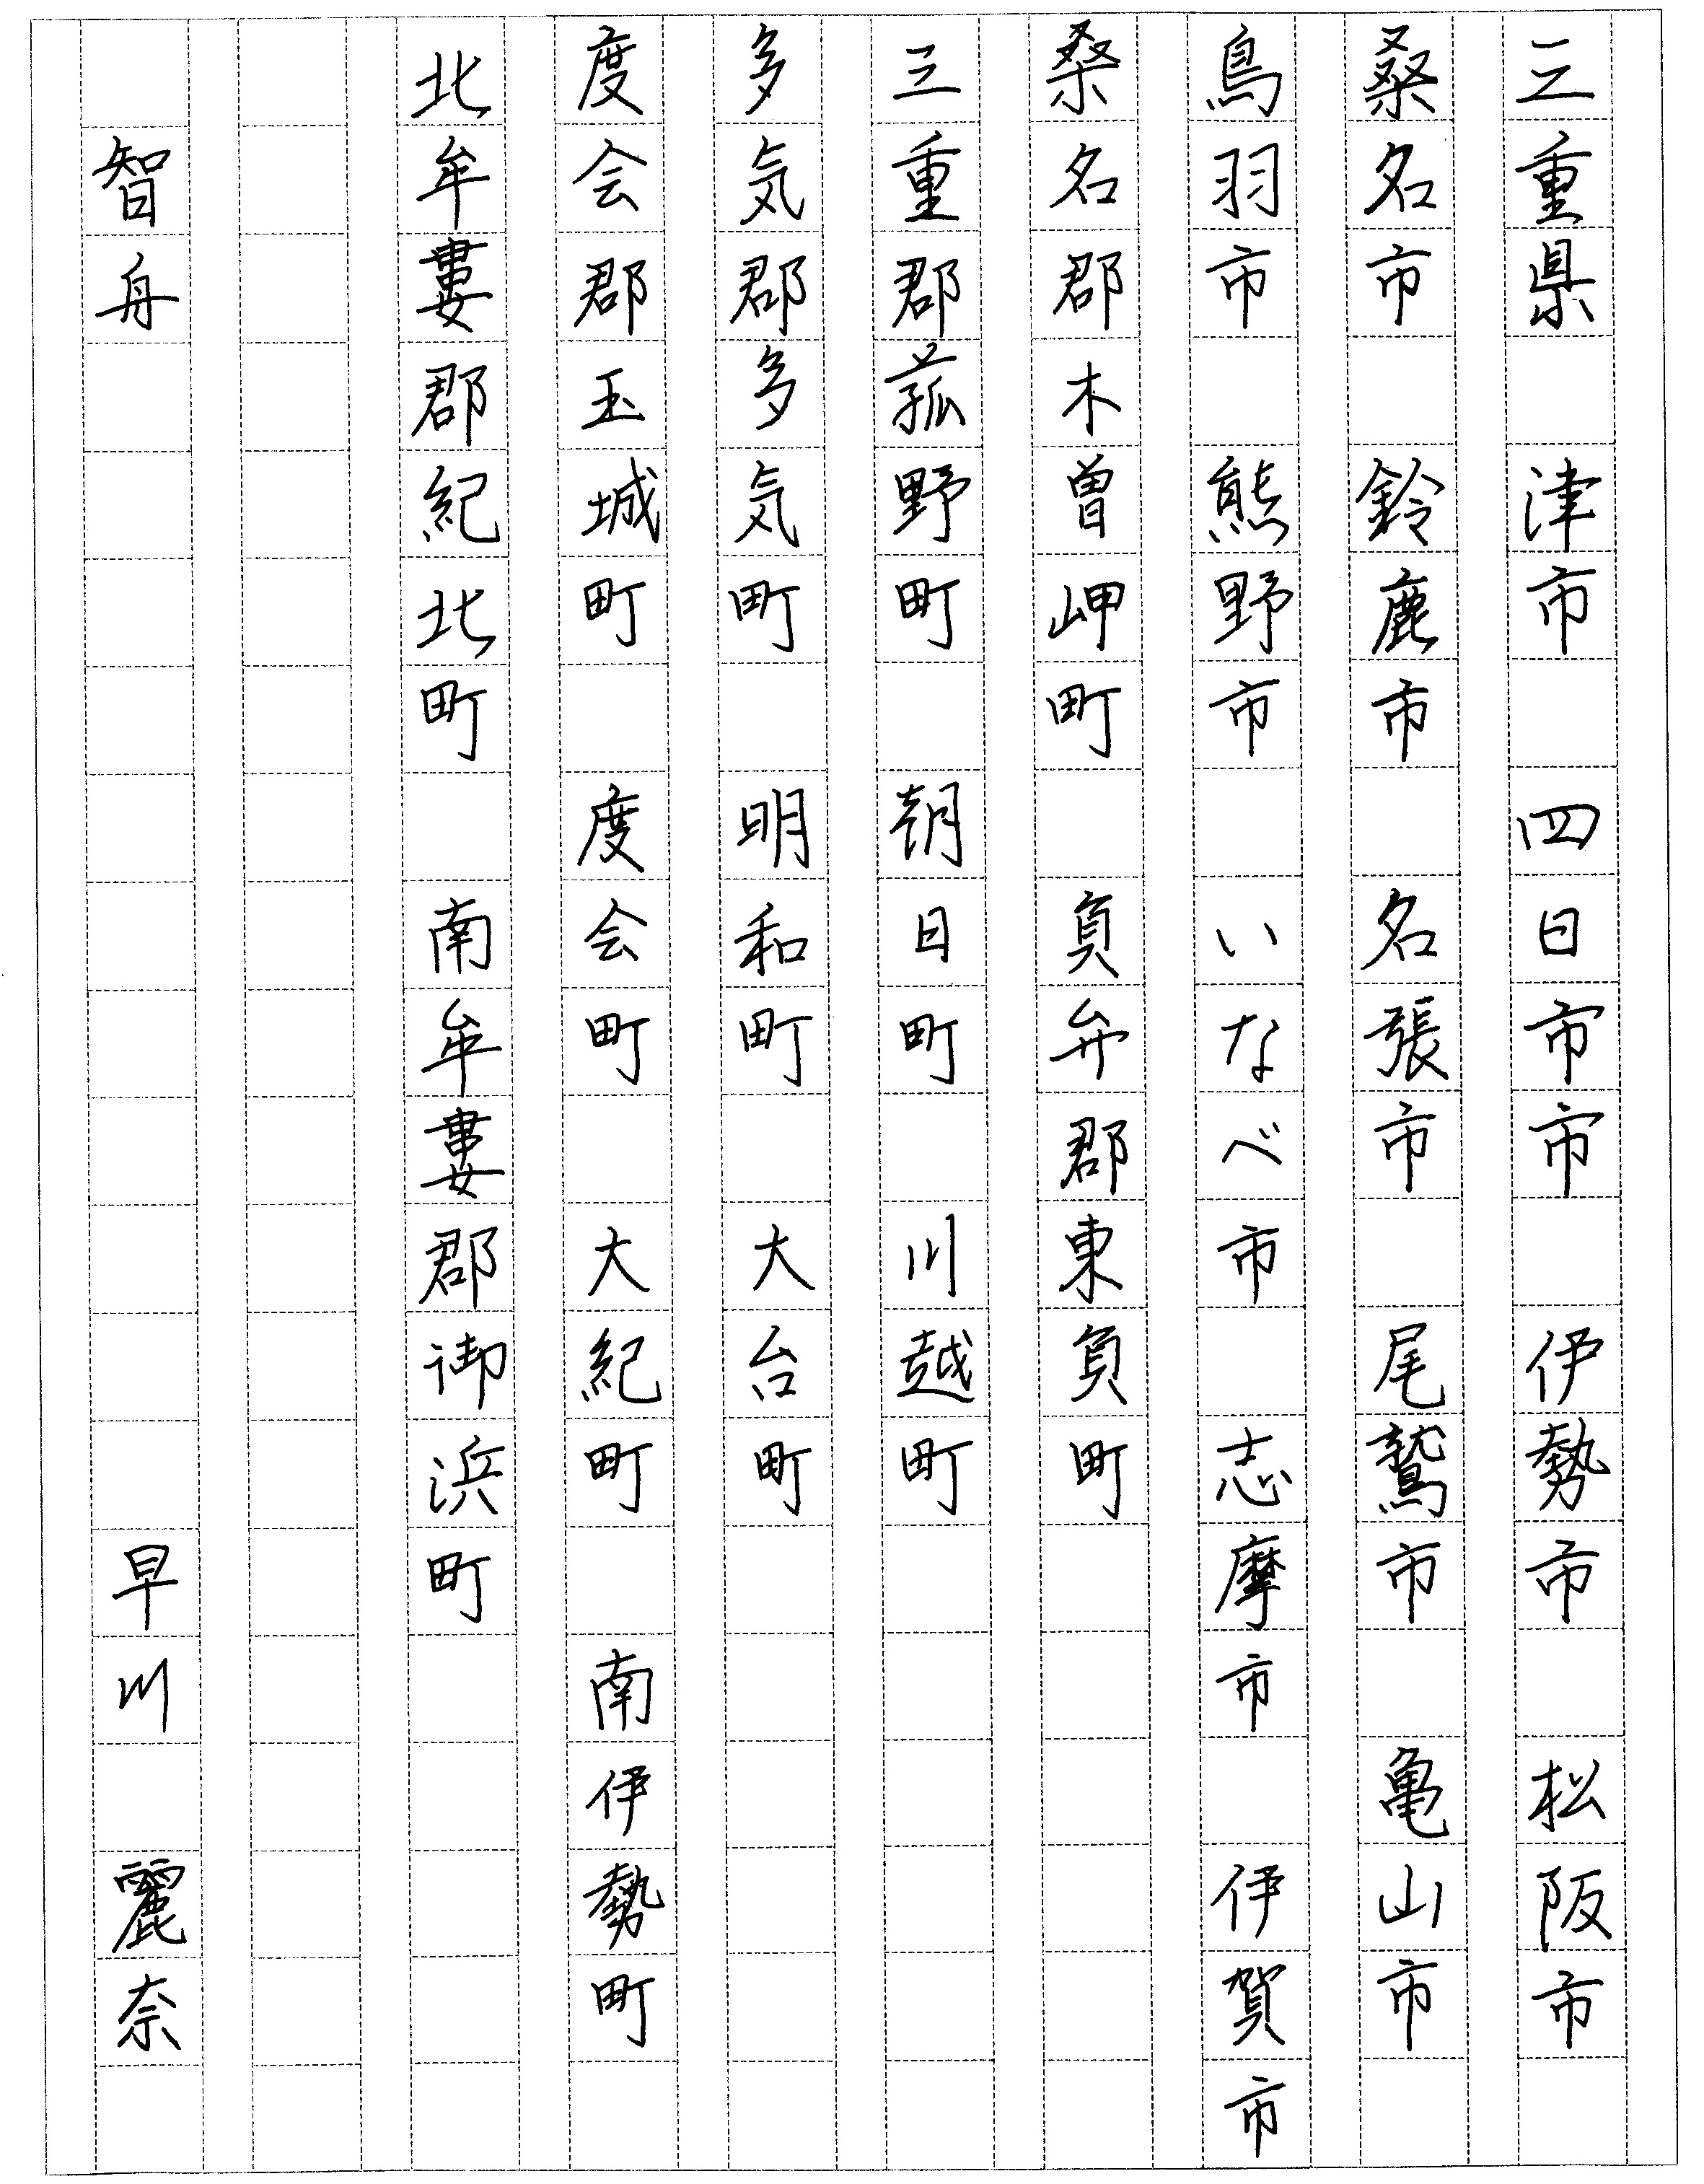 三重県　津市　四日市市　伊勢市　松阪市
桑名市　鈴鹿市　名張市　尾鷲市　亀山市
鳥羽市　熊野市　いなべ市　志摩市　伊賀市
桑名郡木曽岬町　員弁郡東員町
三重郡菰野町　朝日町　川越町
多気郡多気町　明和町　大台町
度会郡玉城町　度会町　大紀町　南伊勢町
北牟婁郡紀北町　南牟婁郡御浜町
智舟　早川　麗奈